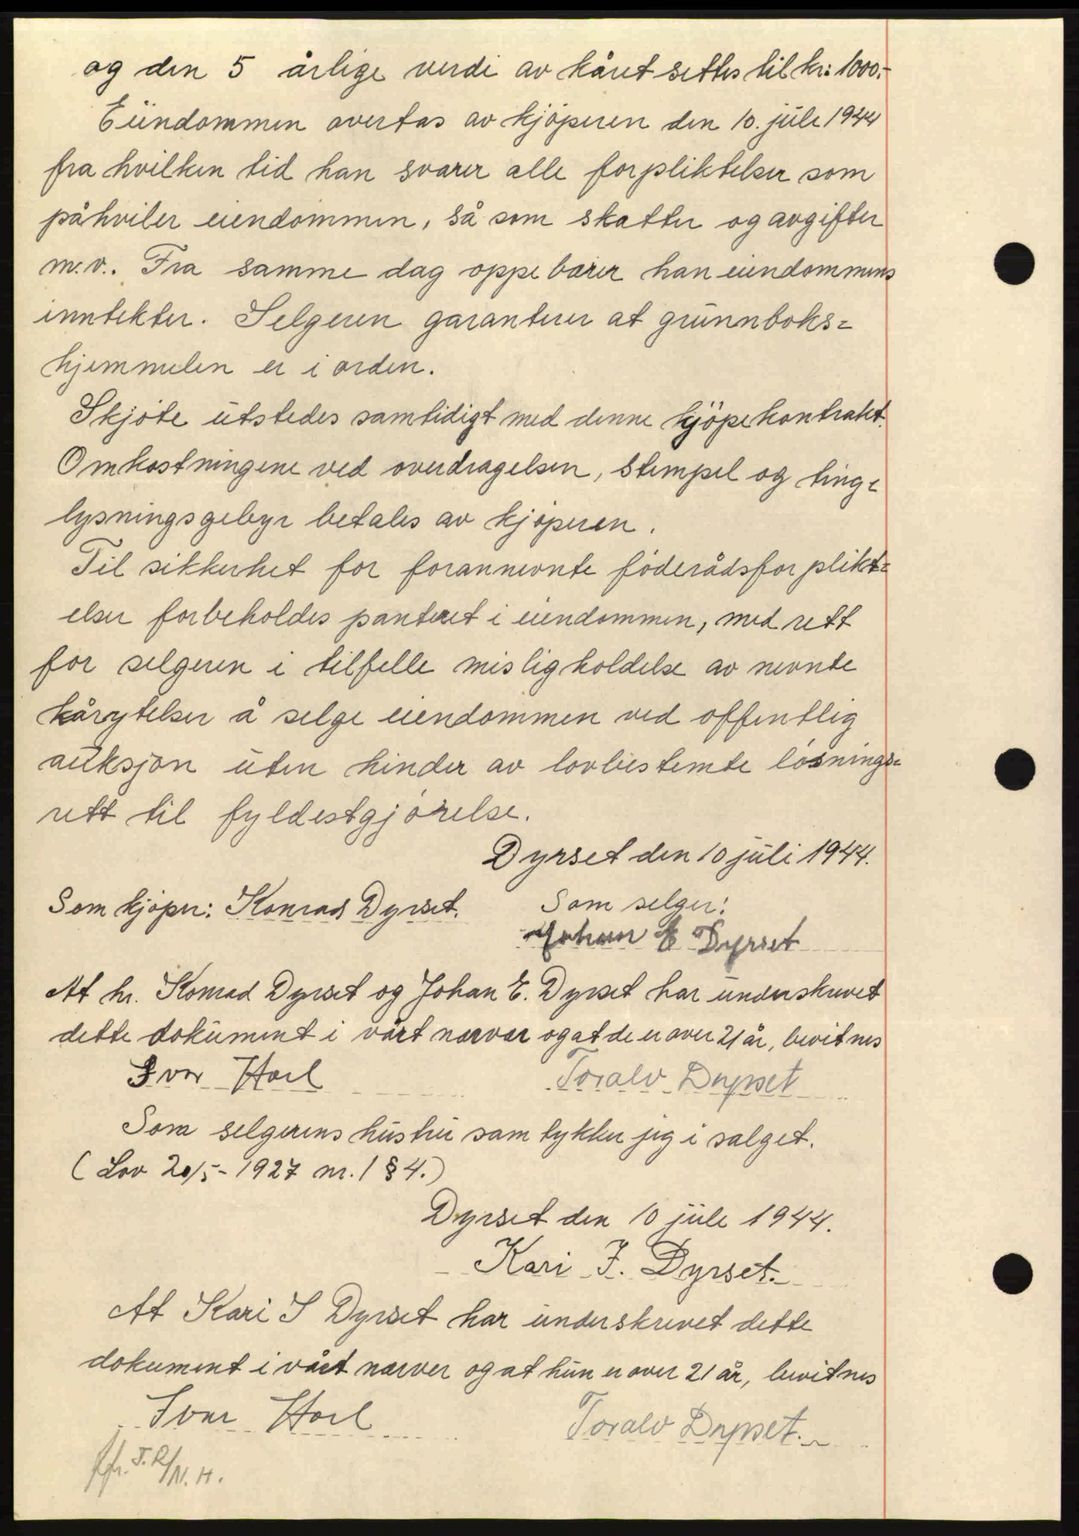 og den 5 årlige verdi av kåret settes til kr: 1000.-
Eiendommen overtas av kjøperen den 10. juli 1944
fra hvilken tid han svarer alle forpliktelser som
påhviler eiendommen, så som skatter og avgifter
m.v.. Fra samme dag oppebærer han eiendommens
inntekter. Selgeren garanterer at grunnboks=
hjemmelen er i orden.
Skjøte utstedes samtidigt med denne kjöpekontrakt.
Omkostningene ved overdragelsen, stempel og ting=
lysningsgebyr betales av kjøperen.
Til sikkerhet for forannevnte føderådsforplikt=
elser forbeholdes panteret i eiendommen, med rett
for selgeren i tilfelle misligholdelse av nevnte
kårytelser å selge eiendommen ved offentlig
auksjon uten hinder av lovbestemte løsnings=
rett til fyldestgjørelse.
Dyrset den 10 juli 1944.
Som kjøper: Konrad Dyrset. Som selger:
Johan E Dyrset
At hr. Konrad Dyrset og Johan E. Dyrset har underskrevet
dette dokument i vårt nærvær og at de er over 21 år, bevitnes
Ivar Hoel Toralv Dyrset
Som selgerens hustru samtykker jeg i salget.
(Lov 20/5-1927 nr. 1 § 4.)
Dyrset den 10 juli 1944.
Kari I. Dyrset.
At Kari I Dyrset har underskrevet dette
dokument i vårt nærver og at hun er over 21 år, bevitnes
Ivar Hoel Toralv Dyrset.
J.R/N.H.